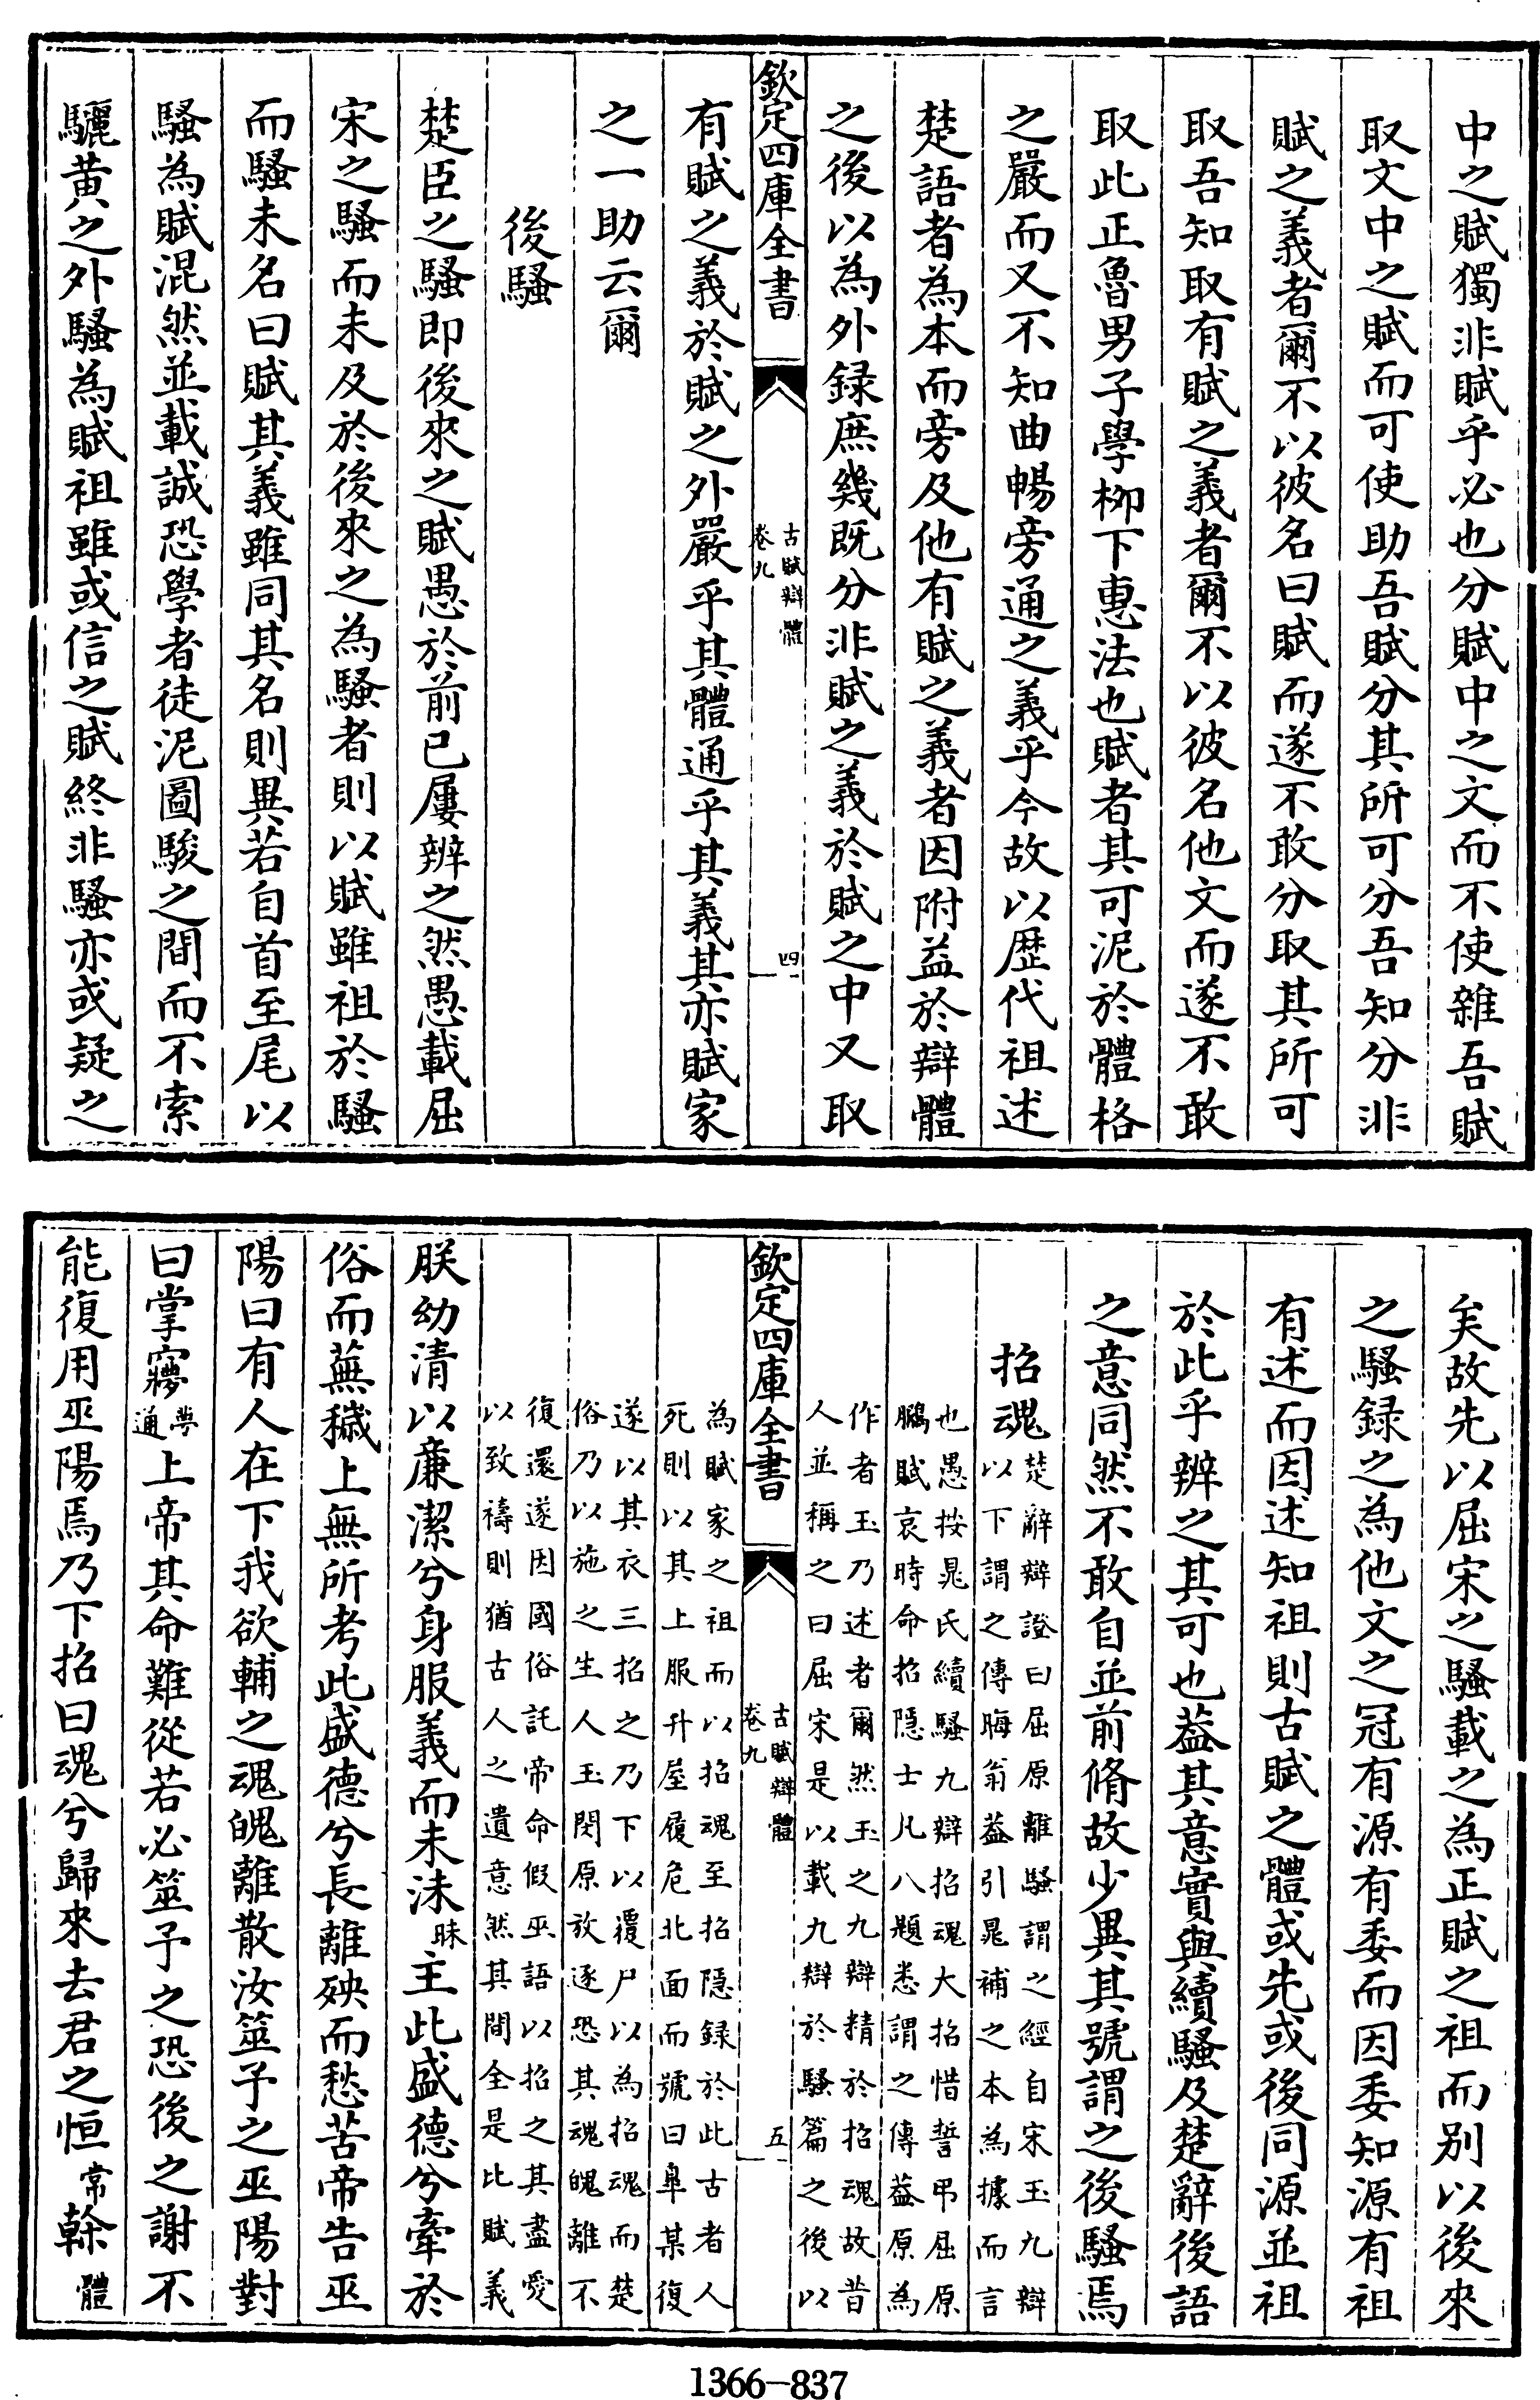 中之賦獨非賦乎必也分賦中之文而不使雜吾賦
取文中之賦而可使助吾賦分其所可分吾知分非
賦之義者爾不以彼名曰賦而遂不敢分取其所可
取吾知取有賦之義者爾不以彼名他文而遂不敢
取此正魯男子學栁下惠法也賦者其可泥於體格
之嚴而又不知曲暢旁通之義乎今故以歴代祖述
楚語者為本而旁及他有賦之義者因附益於辯體
之後以為外録庶幾既分非賦之義於賦之中又取
欽定四庫全書
古賦辯體
卷九
四
有賦之義於賦之外嚴乎其體通乎其義其亦賦家
之一助云爾
後騷
楚臣之騷即後來之賦愚於前已屢辨之然愚載屈
宋之騷而未及於後來之為騷者則以賦雖祖於騷
而騷未名曰賦其義雖同其名則異若自首至尾以
騷為賦混然並載誠恐學者徒泥圖駿之間而不索
驪黄之外騷為賦祖雖或信之賦終非騷亦或疑之
矣故先以屈宋之騷載之為正賦之祖而别以後來
之騷録之為他文之冠有源有委而因委知源有祖
有述而因述知祖則古賦之體或先或後同源並祖
於此乎辨之其可也葢其意實與續騷及楚辭後語
之意同然不敢自並前脩故少異其號謂之後騷焉
招魂
楚辭辯證曰屈原離騷謂之經自宋玉九辯
以下謂之傳晦翁葢引晁補之本為據而言
也愚按晁氏續騷九辯招魂大招惜誓弔屈原
鵩賦哀時命招隠士凡八題悉謂之傳葢原為
作者玉乃述者爾然玉之九辯精於招魂故昔
人並稱之曰屈宋是以載九辯於騷篇之後以
欽定四庫全書
古賦辯體
卷九
五
為賦家之祖而以招魂至招隠録於此古者人
死則以其上服升屋履危北面而號曰臯某復
遂以其衣三招之乃下以覆尸以為招魂而楚
俗乃以施之生人玉閔原放逐恐其魂魄離不
復還遂因國俗託帝命假巫語以招之其盡愛
以致禱則猶古人之遺意然其間全是比賦義
朕幼清以廉潔兮身服義而未沬昧主此盛德兮牽於
俗而蕪穢上無所考此盛德兮長離殃而愁苦帝告巫
陽曰有人在下我欲輔之魂魄離散汝筮予之巫陽對
曰掌㝱夢通上帝其命難從若必筮予之恐後之謝不
能復用巫陽焉乃下招曰魂兮歸來去君之恒常幹體
1366-837